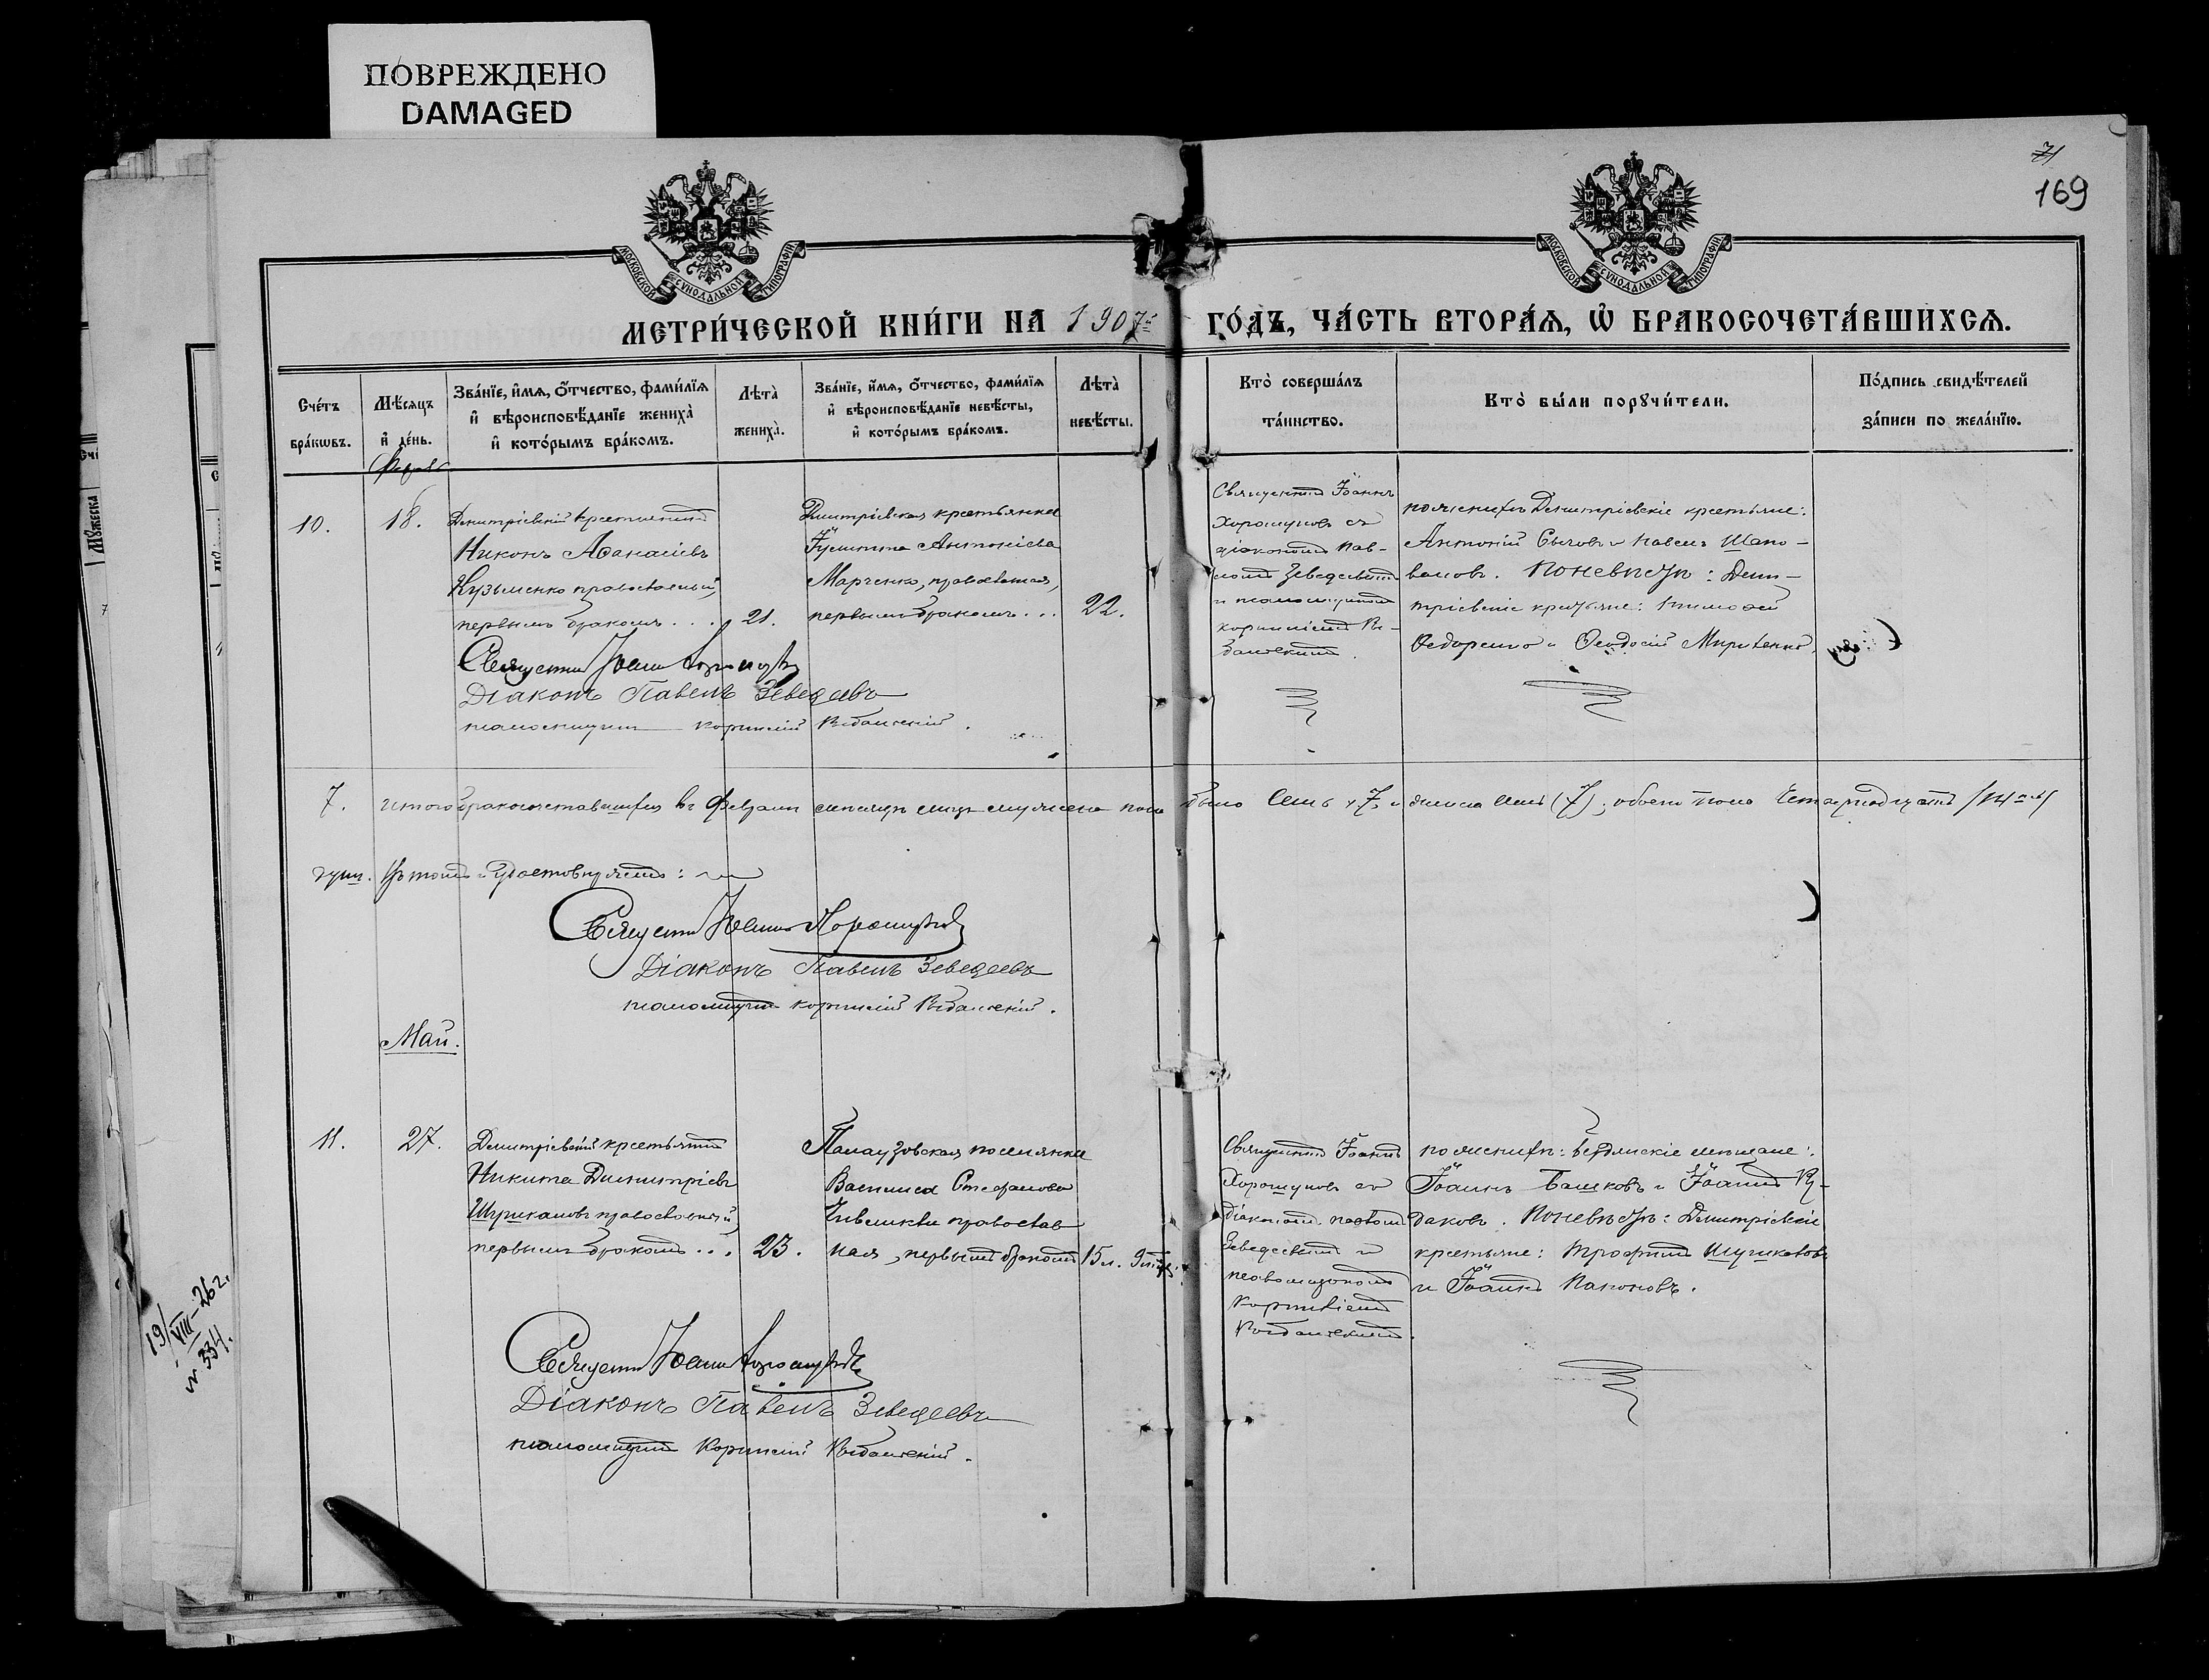 ПОВРЕЖДЕНО
DAMAGED
71
169
МОСКОВСКОЙ СѴНОДАЛЬНОЙ ТИПОГРАФІИ
МОСКОВСКОЙ СѴНОДАЛЬНОЙ ТИПОГРАФІИ
МЕТРИ́ЧЕСКОЙ КНИ́ГИ НА 1907й ГО́ДЪ, ЧА́СТЬ ВТОРА́Ѧ, Ѡ҆ БРАКОСОЧЕТА́ВШИХСѦ.
Сче́тъ бра́кѡвъ.
Мѣ́сѧцъ и҆ де́нь.
Зва́нїе, и҆́мѧ, ѻ҆́тчество, фами́лїѧ
и҆ вѣроисповѣ́данїе жениха̀
и҆ кото́рымъ бра́комъ.
Лѣта̀ жениха̀.
Зва́нїе, и҆́мѧ, ѻ҆́тчество, фами́лїѧ
и҆ вѣроисповѣ́данїе невѣ́сты,
и҆ кото́рымъ бра́комъ.
Лѣта̀ невѣ́сты.
Кто̀ соверша́лъ
та́инство.
Кто̀ бы́ли порꙋчи́тели.
По́дпись свидѣ́телей
за́писи по жела́нїю.
10.
18.
Димитріевскій крестьянинъ
Никонъ Аѳанасіевъ
Кузьменко православный,
первымъ бракомъ . . .
21.
Димитріевская крестьянка
Іустина Антоніева
Марченко, православная,
первымъ бракомъ . . .
22.
Священникъ Іоаннъ
Хорошуновъ съ
діакономъ Пав-
ломъ Зеведеевымъ
и псаломщикомъ
по женихѣ Димитріевскіе крестьяне:
Антоній Сычовъ и Павелъ Шапо-
валовъ. По невѣстѣ: Дими-
тріевскіе крестьяне: Тимоѳей
Ѳедоренко и Ѳеодосій
Священникъ Іоаннъ Хорошуновъ
Діаконъ Павелъ Зеведеевъ
псаломщикъ
7.
Итого бракосочетавшихся въ Февралѣ мѣсяцѣ лицъ мужеска пола было семь (7) и женска семь (7); обоего пола четырнадцать (14ть)
душ. Въ томъ и удостовѣряемъ:
Священникъ Іоаннъ Хорошуновъ
Діаконъ Павелъ Зеведеевъ
псаломщикъ
Май.
11.
27.
Димитріевскій крестьянинъ
Никита Димитріевъ
православный,
первымъ бракомъ . . .
23.
поселянка
Василиса Стефанова
православ
ная, первымъ бракомъ
15 л.
Священникъ Іоаннъ
Хорошуновъ съ
діакономъ Павломъ
Зеведеевымъ и
псаломщикомъ
по женихѣ: Бердянскіе мѣщане:
Іоаннъ Башковъ и Іоаннъ Ку-
даковъ. По невѣстѣ: Димитріевскіе
крестьяне: Трофимъ
и Іоаннъ
Священникъ Іоаннъ Хорошуновъ
Діаконъ Павелъ Зеведеевъ
псаломщикъ
19/VIII-26 г.
№ 334.